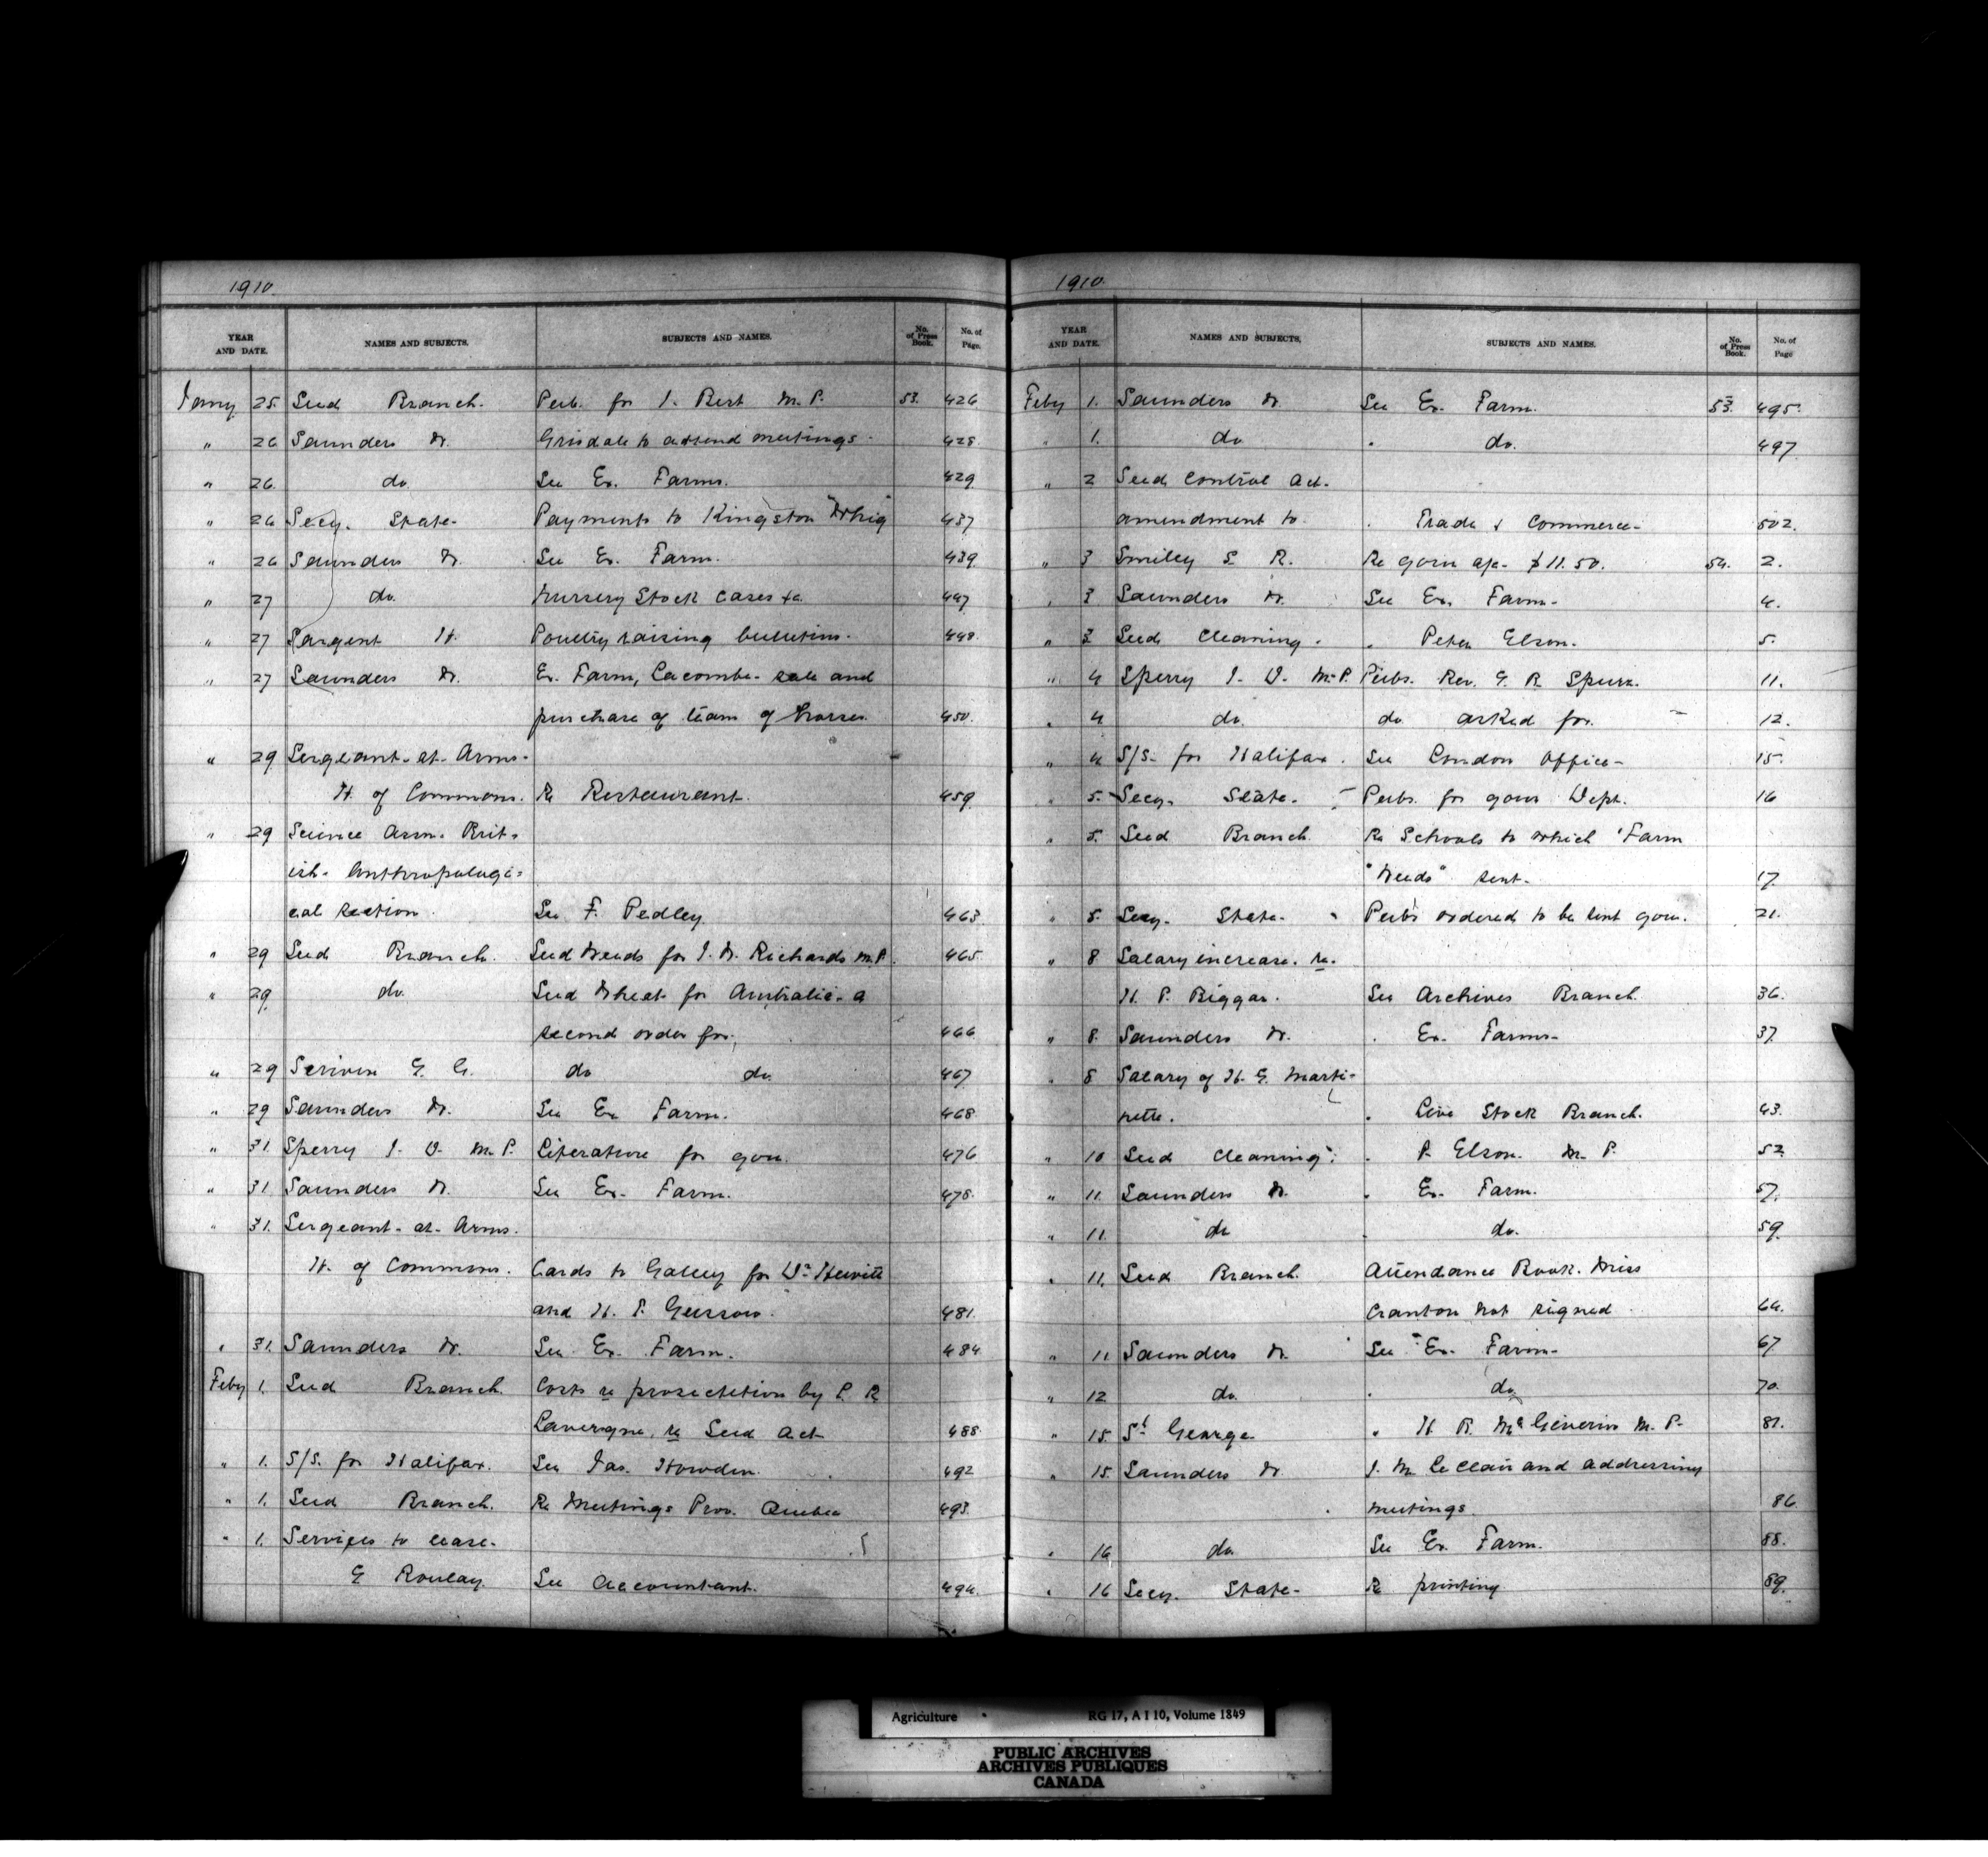 1910.
YEAR AND DATE. NAMES AND SUBJECTS. SUBJECTS AND NAMES. No. of Press Book. No. of Page.
Jany 25. Seed Branch. Pub. for J. Best M.P. 53. 426
" 26 Saunders W. Grisdale to attend meetings. 428.
" 26. do. See Ex. Farms. 429
" 26 Secy. State. Payments to Kingston Whig 437
" 26 Saunders W. See Ex. Farm. 439
" 27 do. Nursery Stock cases &c. 447
" 27 Sargent H. Poultry raising bulletins. 448.
" 27 Saunders W. Ex. Farm, Lacombe. sale and
purchase of team of horses. 450.
" 29 Sergeant-at-Arms.
H. of Commons. Re Restaurant. 459
" 29 Science Assn. Brit=
ish. Anthropologi=
cal section. See F. Pedley. 463
" 29 Seed Branch. Seed Weeds for J. W. Richards M.P. 465.
" 29 do. Seed Wheat for Australia. a
second order for. 466
" 29 Scriven G. G. do do. 467
" 29 Saunders W. See Ex Farm. 468
" 31. Sperry J. D. M.P. Literature for gou. 476
" 31. Saunders W. See Ex. Farm. 478.
" 31. Sergeant-at-Arms.
H. of Commons. Cards to Gallery for Dr Hewitt
and H. T. Gussow. 481.
" 31. Saunders W. See Ex. Farm. 484
Feby 1. Seed Branch. Costs re prosecution by L. R.
Lavergne, re Seed Act 488
" 1. S/S. for Halifax. See Jas. Howden. 492
" 1. Seed Branch. Re Meetings Prov. Quebec 493.
" 1. Services to cease.
G Roulay. See Accountant. 494.
1910.
YEAR AND DATE. NAMES AND SUBJECTS. SUBJECTS AND NAMES. No. of Press Book. No. of Page
Feby 1. Saunders W. See Ex. Farm. 53. 495.
" 1. do " do. 497
" 2 Seed Control Act.
amendment to. " Trade & Commerce. 502.
" 3 Smiley S. R. Re govn a/c. $11.50. 54. 2.
" 3 Saunders W. See Ex. Farm. 4.
" 3 Seed Cleaning. " Peter Elson. 5.
" 4 Sperry J. D. M.P. Pubs. Rev. G. R. Spurr. 11.
" 4 do. do asked for. 12.
" 4 S/S. for Halifax. See London Office. 15.
" 5. Secy. State. Pubs. for govn Dept. 16
" 5. Seed Branch. Re Schools to which "Farm
"Weeds" sent. 17.
" 8. Secy. State. Pubs ordered to be sent govn. 21.
" 8 Salary increase. re.
H. P. Biggar. See Archives Branch. 36.
" 8. Saunders W. " Ex. Farms. 37.
" 8 Salary of H. G. Marti=
nette. " Live Stock Branch. 43.
" 10 Seed Cleaning. " P. Elson. M.P. 52.
" 11. Saunders W. " Ex. Farm. 57.
" 11. do " do. 59.
" 11. Seed Branch. Attendance Book. Miss
Cranton not signed. 64.
" 11 Saunders W. See Ex. Farm. 67
" 12 do. " do. 70.
" 15. St George " H. B. McGiverin M.P. 81.
" 15. Saunders W. J. M. LeClair and addressing
meetings. 86
" 16 do. See Ex. Farm. 88.
" 16 Secy. State. Re printing 89.
Agriculture RG 17, A I 10, Volume 1849
PUBLIC ARCHIVES
ARCHIVES PUBLIQUES
CANADA